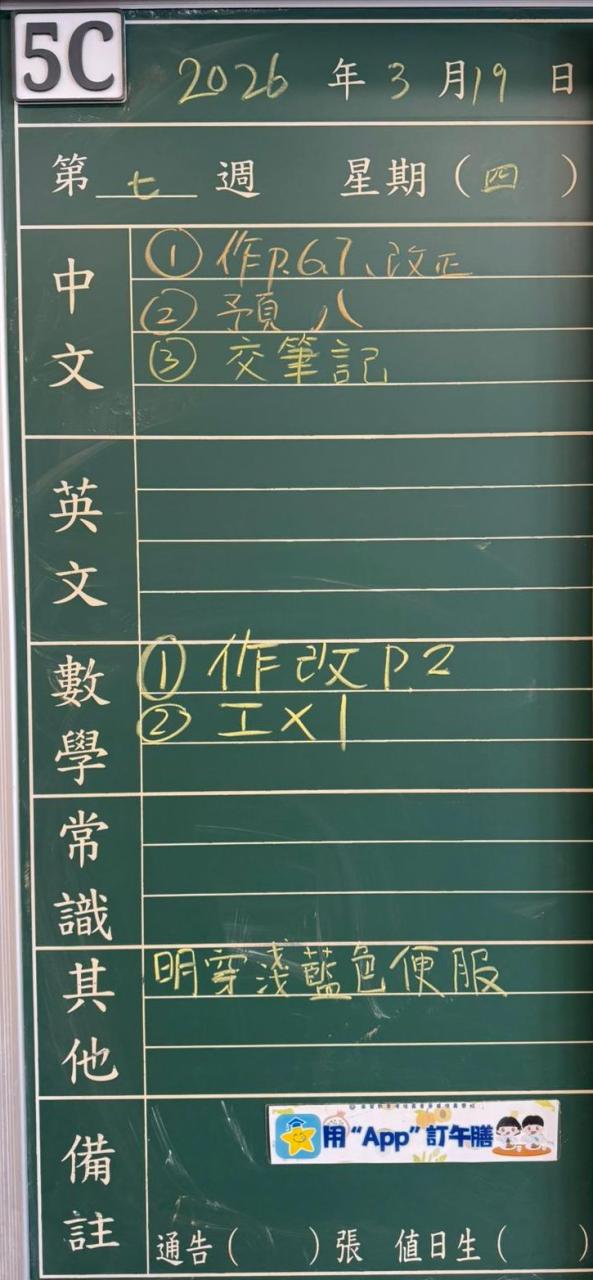 5C
2026 年 3 月 19 日
第 七 週 星期（四）
中文
① 作p.6,7、改正
② 預 八
③ 交筆記
英文
數學
① 作改 P.2
② 工×1
常識
其他
明穿淺藍色便服
備註
用“App”訂午膳
通告（ ）張 值日生（ ）